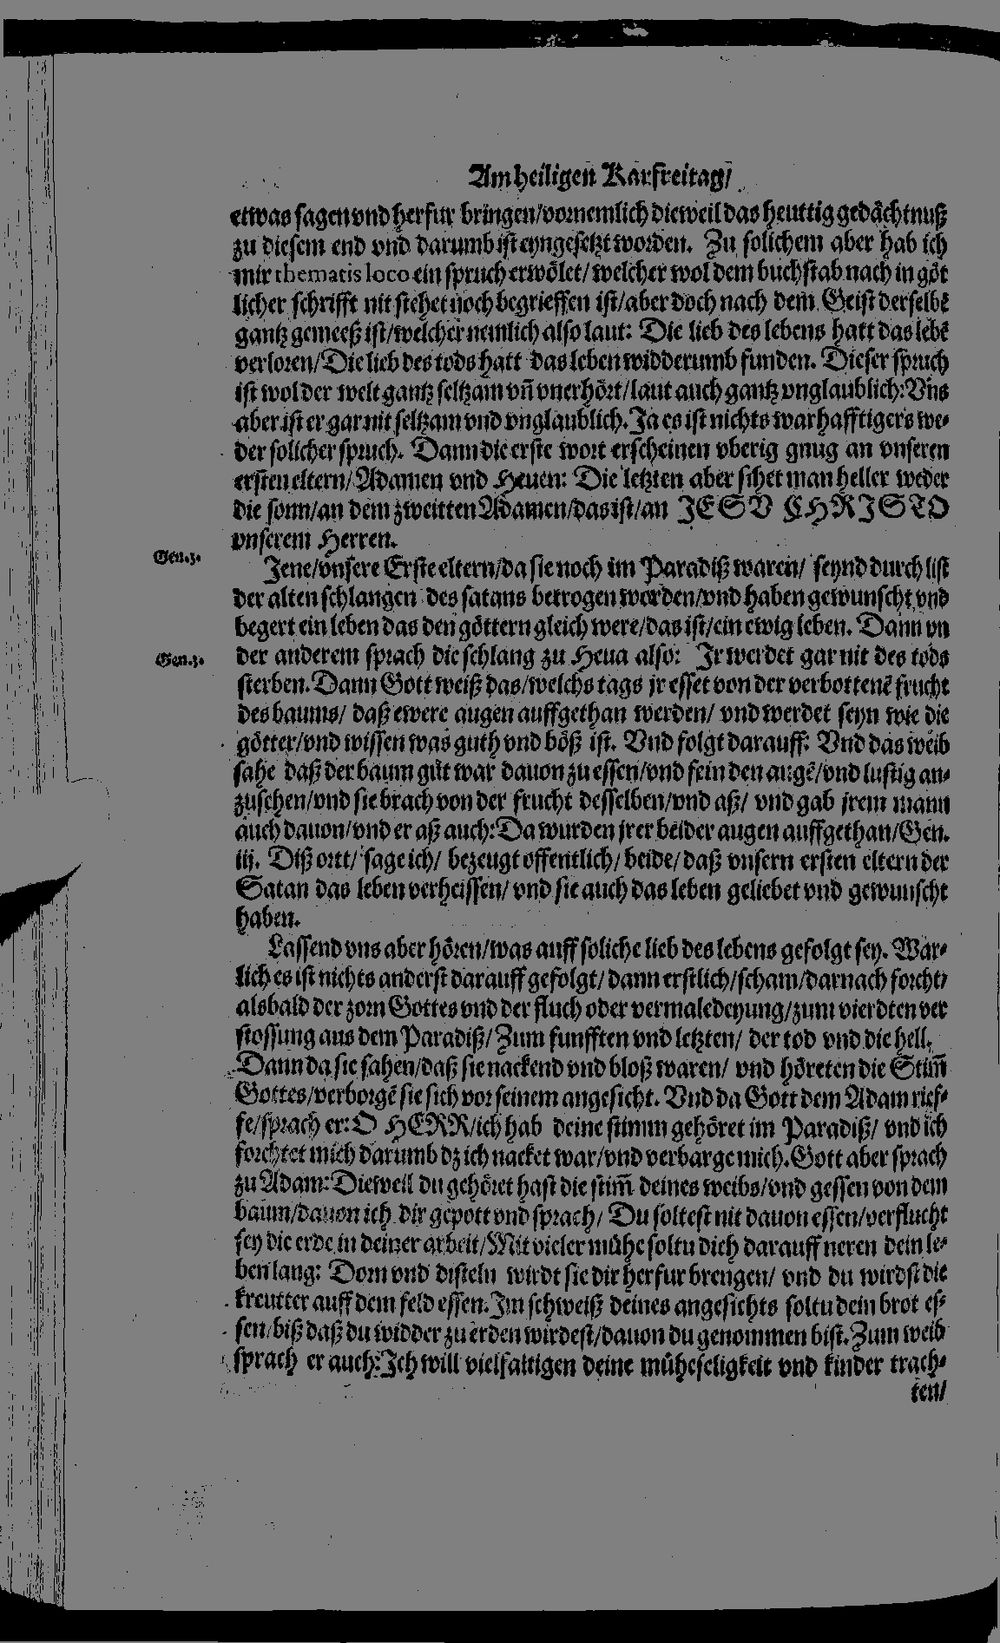 Am heiligen Karfreitag/
etwas sagen vnd herfur bringen/vornemlich dieweil das heuttig gedächtnuß
zu diesem end vnd darumb ist eyngesetzt worden. Zu solichem aber hab ich
mir thematis loco ein spruch erwölet/welcher wol dem buchstab nach in göt
licher schrifft nit stehet noch begrieffen ist/aber doch nach dem Geist derselbē
gantz gemeeß ist/welcher nemlich also laut: Die lieb des lebens hatt das lebē
verloren/Die lieb des tods hatt das leben widderumb funden. Dieser spruch
ist wol der welt gantz seltzam vñ vnerhört/laut auch gantz vnglaublich: Vns
aber ist er gar nit seltzam vnd vnglaublich. Ja es ist nichts warhafftigers we-
der solicher spruch. Dann die erste wort erscheinen vberig gnug an vnseren
ersten eltern/Adamen vnd Heuen: Die letzten aber sihet man heller weder
die sonn/an dem zweitten Adamen/das ist/an JESV CHRISTO
vnserem Herren.
Gen.3.
Jene/vnsere Erste eltern/da sie noch im Paradiß waren/ seynd durch list
der alten schlangen des satans betrogen worden/vnd haben gewunscht vnd
begert ein leben das den göttern gleich were/das ist/ein ewig leben. Dann vn
Gen.3.
der anderem sprach die schlang zu Heua also: Jr werdet gar nit des tods
sterben. Dann Gott weiß das/welchs tags jr esset von der verbottenē frucht
des baums/ daß ewere augen auffgethan werden/ vnd werdet seyn wie die
götter/vnd wissen was guth vnd böß ist. Vnd folgt darauff: Vnd das weib
sahe daß der baum gůt war dauon zu essen/vnd fein den augē/vnd lustig an-
zusehen/vnd sie brach von der frucht desselben/vnd aß/ vnd gab jrem mann
auch dauon/vnd er aß auch: Da wurden jrer beider augen auffgethan/Gen.
iii. Diß ortt/ sage ich/ bezeugt offentlich/ beide/ daß vnsern ersten eltern der
Satan das leben verheissen/ vnd sie auch das leben geliebet vnd gewunscht
haben.
Lassend vns aber hören/was auff soliche lieb des lebens gefolgt sey. War-
lich es ist nichts anderst darauff gefolgt/ dann erstlich/scham/darnach forcht/
alsbald der zorn Gottes vnd der fluch oder vermaledeyung/zum vierdten ver
stossung aus dem Paradiß/ Zum funfften vnd letzten/ der tod vnd die hell.
Dann da sie sahen/daß sie nackend vnd bloß waren/ vnd höreten die Stim̄
Gottes/verborgē sie sich vor seinem angesicht. Vnd da Gott dem Adam rief-
fe/sprach er: O HERR/ich hab deine stimm gehöret im Paradiß/ vnd ich
forchtet mich darumb dz ich nacket war/vnd verbarge mich. Gott aber sprach
zu Adam: Dieweil du gehöret hast die stim̄ deines weibs/vnd gessen von dem
baum/dauon ich dir gepott vnd sprach/ Du soltest nit dauon essen/verflucht
sey die erde in deiner arbeit/Mit vieler mühe soltu dich darauff neren dein le-
ben lang: Dorn vnd disteln wirdt sie dir herfur brengen/ vnd du wirdst die
kreutter auff dem feld essen. Im schweiß deines angesichts soltu dein brot es-
sen/biß daß du widder zu erden wirdest/dauon du genommen bist. Zum weib
sprach er auch: Ich will vielfaltigen deine müheseligkeit vnd kinder trach-
ten/